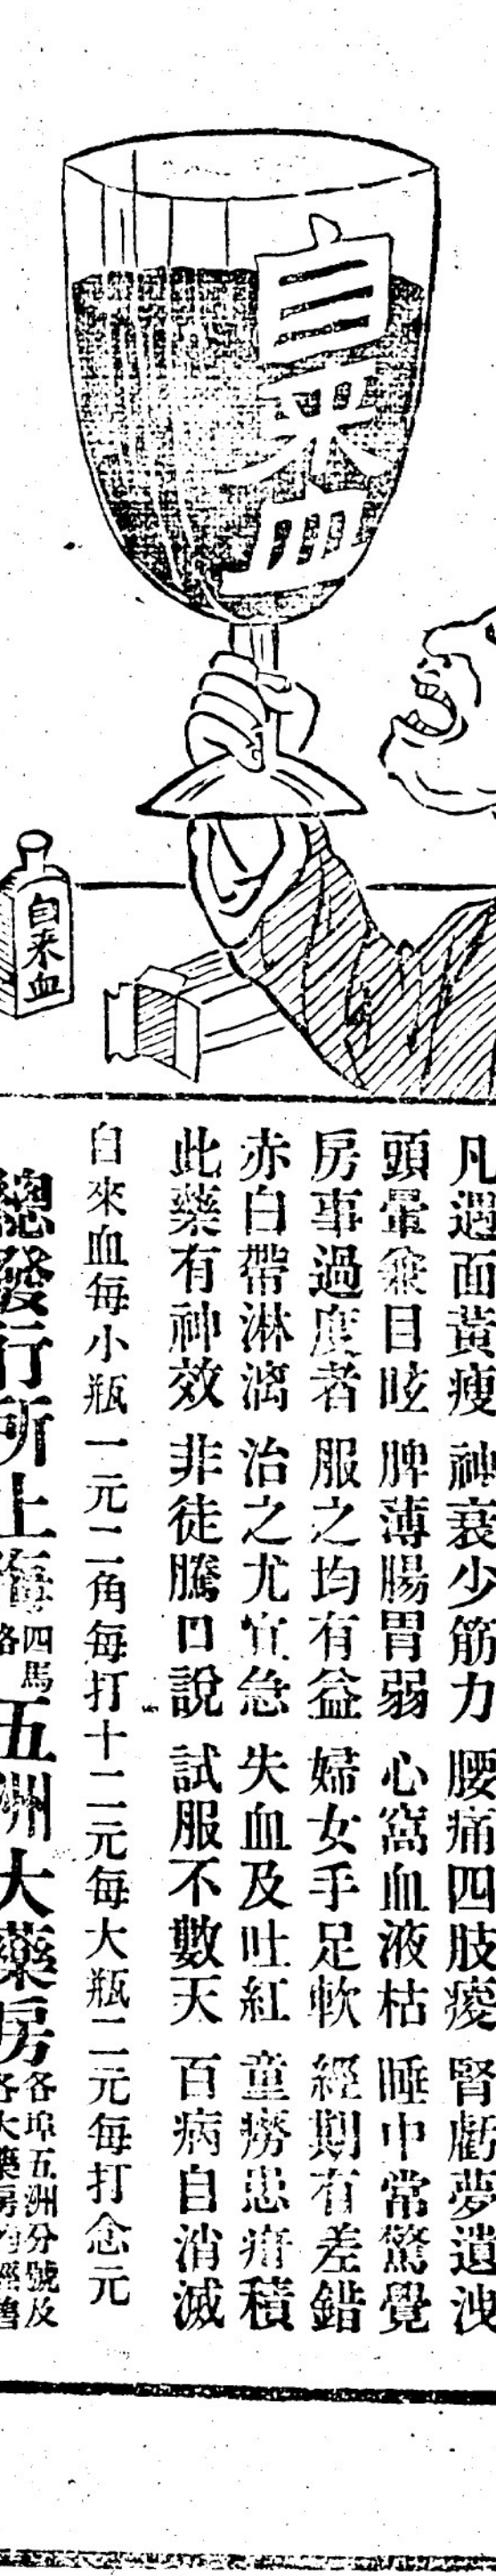 自来血
自来血
凡遇面黃瘦 神衰少筋力 腰痛四肢痠 腎虧夢遺洩
頭暈兼目眩 脾薄腸胃弱 心窩血液枯 睡中常驚覺
房事過度者 服之均有益 婦女手足軟 經期有差錯
赤白帶淋漓 治之尤宜急 失血及吐紅 童癆患疳積
此藥有神效 非徒騰口說 試服不數天 百病自消滅
自來血每小瓶一元二角每打十二元每大瓶二元每打念元
總發行所上海四馬路五洲大藥房各埠五洲分號及各大藥房均經售